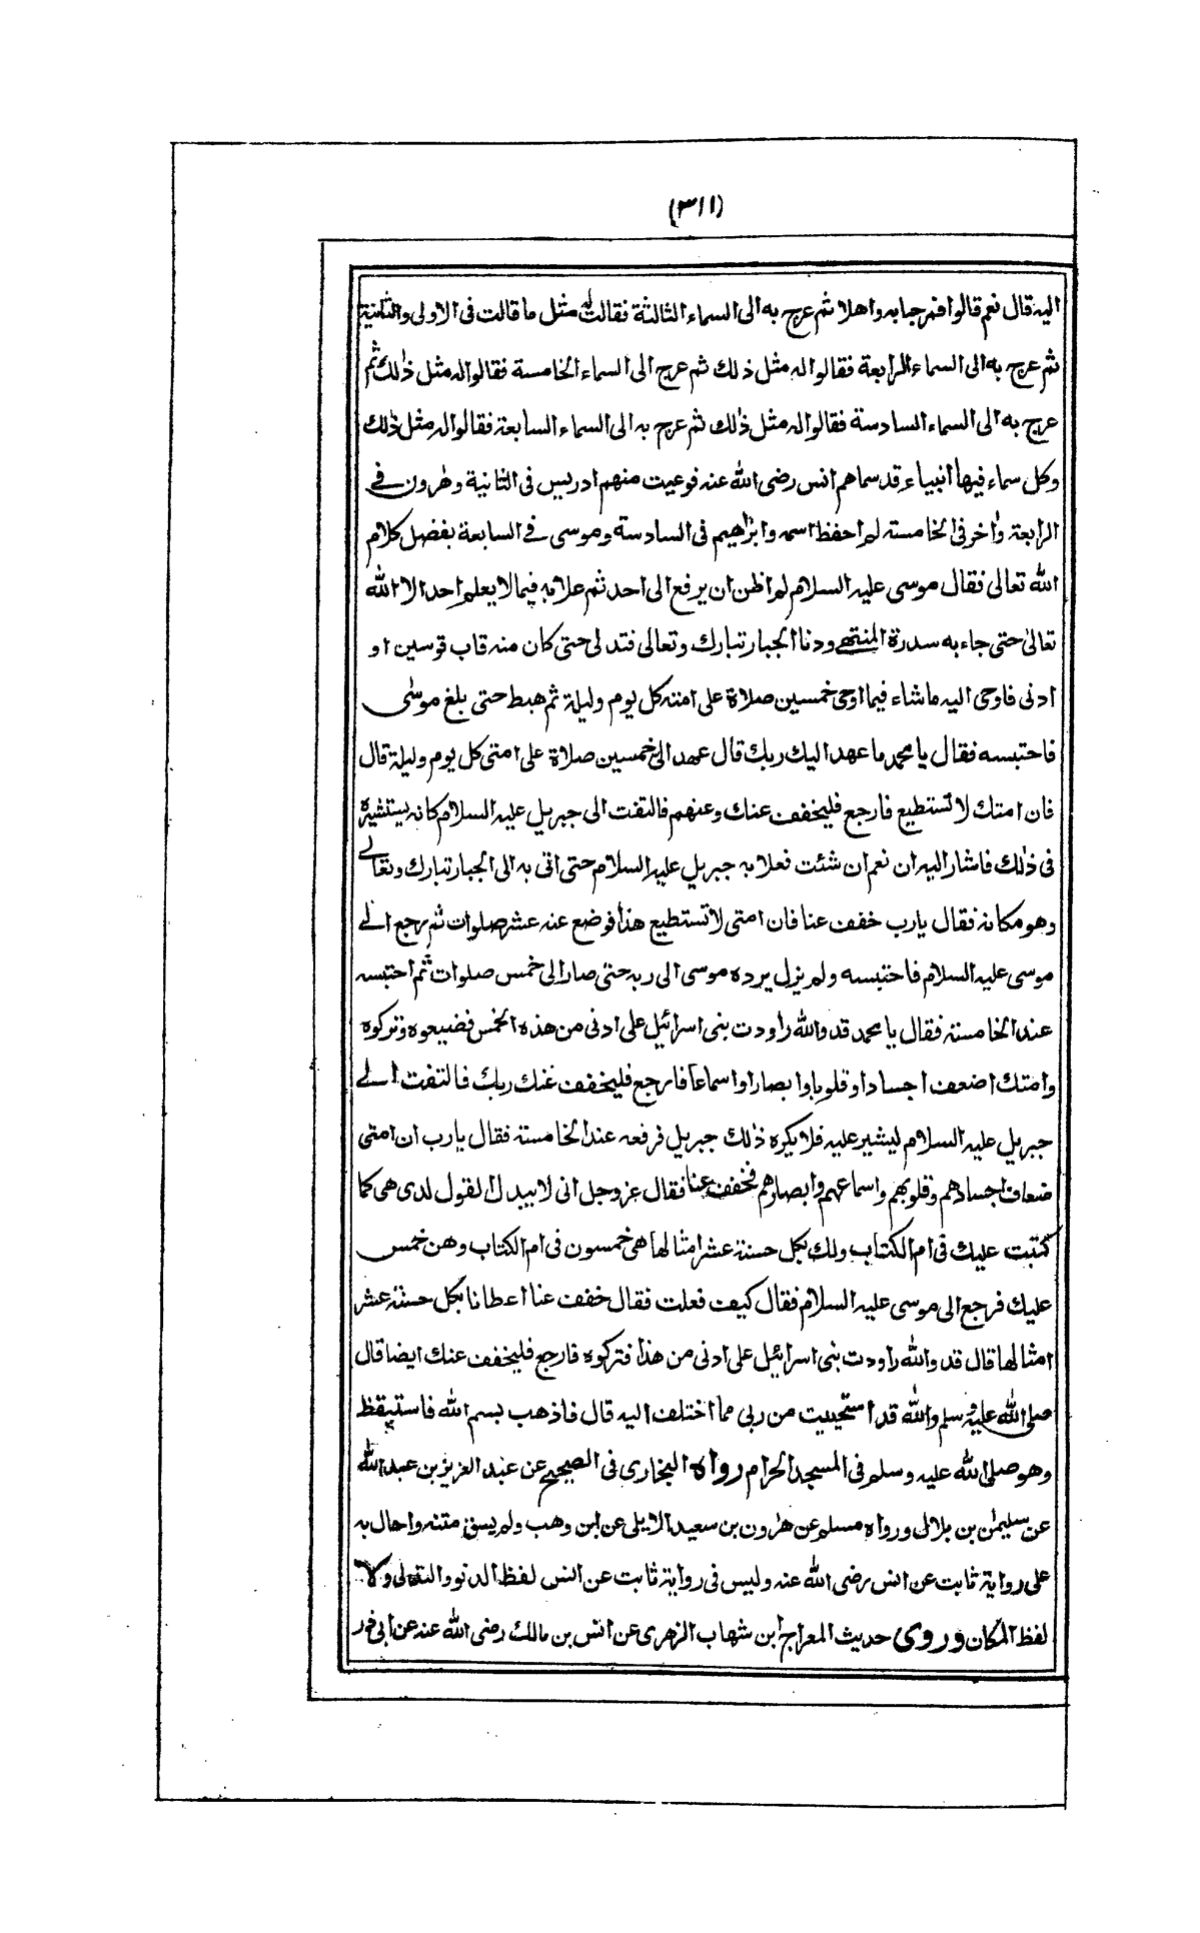 (٣١١)
اليه قال نعم قالوا فمرحبا به واهلا ثم عرج به الى السماء الثالثة فقالت له مثل ما قالت فى الاولى والثانية
ثم عرج به الى السماء الرابعة فقالوا له مثل ذلك ثم عرج الى السماء الخامسة فقالوا له مثل ذٰلك ثم
عرج به الى السماء السادسة فقالوا له مثل ذٰلك ثم عرج به الى السماء السابعة فقالوا له مثل ذٰلك
وكل سماء فيها انبياء قد سماهم انس رضى الله عنه فوعيت منهم ادريس فى الثانية وهٰرون فى
الرابعة واٰخر فى الخامسة لم احفظ اسمه وابرٰاهيم فى السادسة وموسى فى السابعة بفضل كلام
الله تعالى فقال موسى عليه السلام لم اظن ان يرفع الى احد ثم علا به فيما لا يعلم احد الا الله
تعالىٰ حتى جاء به سدرة المنتهى ودنا الجبار تبارك وتعالى فتدلى حتى كان منه قاب قوسين او
ادنى فاوحى اليه ما شاء فيما اوحى خمسين صلاة على امته كل يوم وليلة ثم هبط حتى بلغ موسٰى
فاحتبسه فقال يا محمد ما عهد اليك ربك قال عهد الى خمسين صلاة على امتى كل يوم وليلة قال
فان امتك لا تستطيع فارجع فليخفف عنك وعنهم فالتفت الى جبريل عليه السلام كانه يستشيره
فى ذٰلك فاشار اليه ان نعم ان شئت فعلا به جبريل عليه السلام حتى اتى به الى الجبار تبارك وتعالى
وهو مكانه فقال يا رب خفف عنا فان امتى لا تستطيع هذا فوضع عنه عشر صلوات ثم رجع الى
موسى عليه السلام فاحتبسه ولم يزل يرده موسى الى ربه حتى صار الى خمس صلوات ثم احتبسه
عند الخامسة فقال يا محمد قد والله راودت بنى اسرائيل على ادنى من هذه الخمس فضيعوه وتركوه
وامتك اضعف اجسادا وقلوبا وابصارا واسماعا فارجع فليخفف عنك ربك فالتفت الى
جبريل عليه السلام ليشير عليه فلا يكره ذٰلك جبريل فرفعه عند الخامسة فقال يا رب ان امتى
ضعاف اجسادهم وقلوبهم واسماعهم وابصارهم فخفف عنا فقال عز وجل انى لا يبدل القول لدى هى كما
كتبت عليك فى ام الكتاب ولك بكل حسنة عشر امثالها هى خمسون فى ام الكتاب وهن خمس
عليك فرجع الى موسى عليه السلام فقال كيف فعلت فقال خفف عنا اعطانا بكل حسنة عشر
امثالها قال قد والله راودت بنى اسرائيل على ادنى من هذا فتركوه فارجع فليخفف عنك ايضا قال
صلى الله عليه وسلم والله قد استحييت من ربى مما اختلف اليه قال فاذهب بسم الله فاستيقظ
وهو صلى الله عليه وسلم فى المسجد الحرام رواه البخارى فى الصحيح عن عبد العزيز بن عبد الله
عن سليمٰن بن بلال ورواه مسلم عن هٰرون بن سعيد الايلى عن ابن وهب ولم يسق متنه واحال به
على رواية ثابت عن انس رضى الله عنه وليس فى رواية ثابت عن انس لفظ الدنو والتدلى ولا
لفظ المكان وروى حديث المعراج ابن شهاب الزهرى عن انس بن مالك رضى الله عنه عن ابى ذر